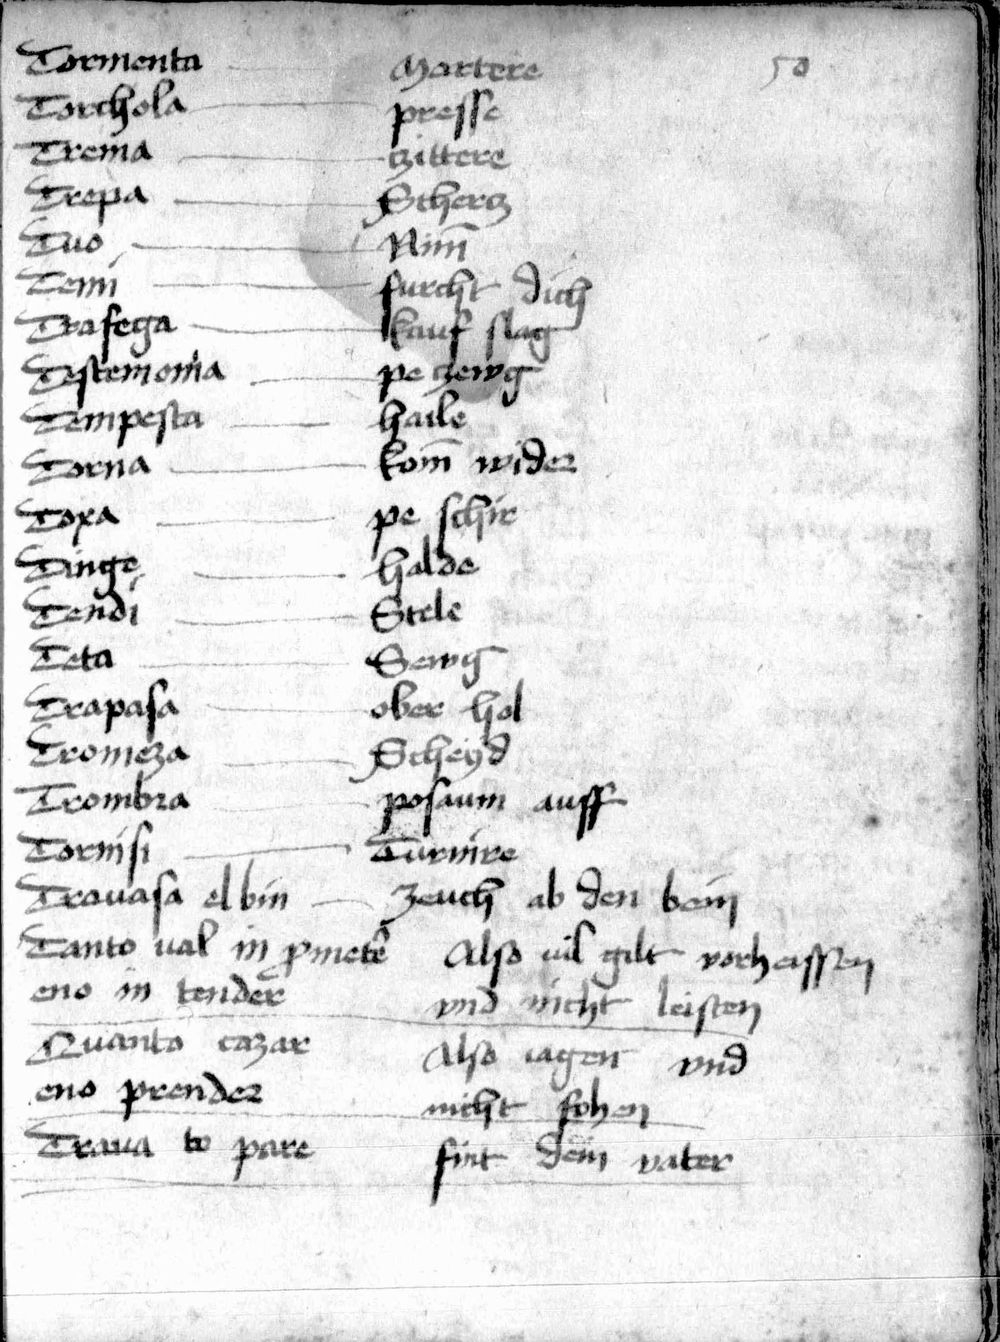 50
Tormenta Martere
Torchola presse
Trema czittere
Trepa Schercz
Tuo Nim̄
Temi furcht dich
Trafega kauf slag
Testemonia pe czewg
Tempesta haile
Torna kom̄ wider
Toxa pe schir
Tinge halde
Tendi Stele
Teta Sewg
Trapasa ober hol
Tromeza Scheyd
Trombra posaum auff
Tornisi Turnire
Trauasa el bin Zeuch ab den bein
Tanto ual in ꝓmeter Also uil gilt vorheissen
eno in tender vnd nicht leisten
Quanto cazar Also iagen vnd
eno prender nicht fohen
Traua to pare fint dein vater